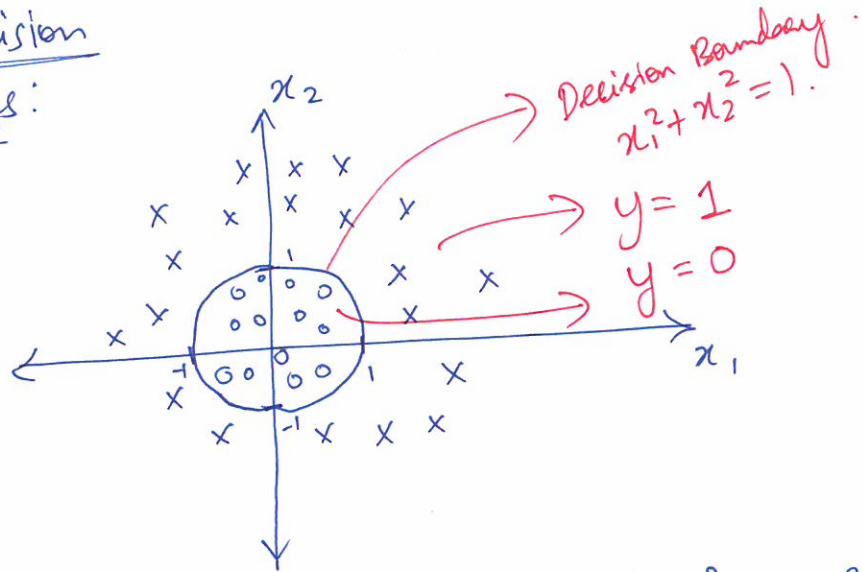 ision
s:
x₂
Decision Boundary
x₁² + x₂² = 1.
y = 1
y = 0
1
-1
1
x₁
-1